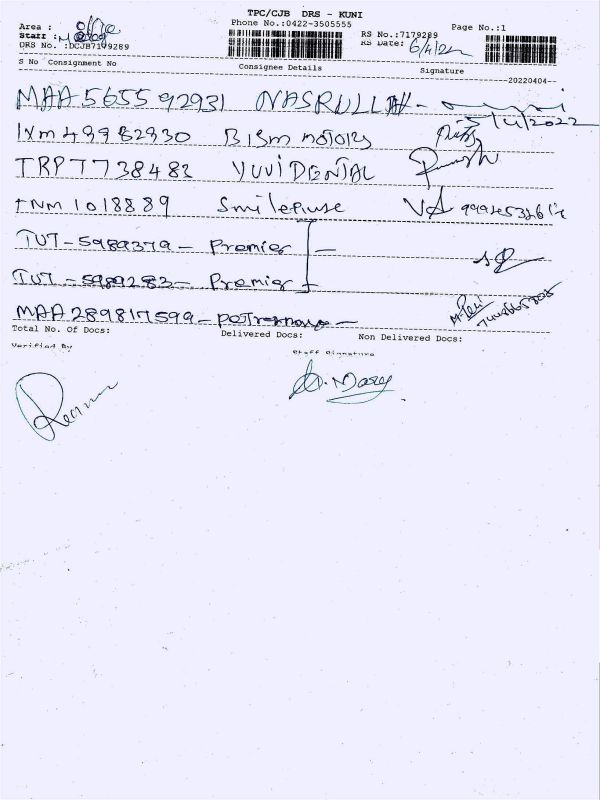 TPC/CJB DRS - KUNI
Area :
Phone No.:0422-3505555
Page No.:1
Staff :
RS No.:7179289
DRS No. :DCJB7179289
RS Date: 6/4/22
S No Consignment No Consignee Details Signature
20220404
MAA 565592931 NASRULLAH
5/4/2022
IXM 49982930 BISM motors
TRP 7738483 YUVI DENTAL
TNM 1018889 Smilepluse
TUT-5989379 - Premier
TUT-5989283 - Premier
MAA 289817599
Total No. Of Docs: Delivered Docs: Non Delivered Docs:
Verified By Staff Signature